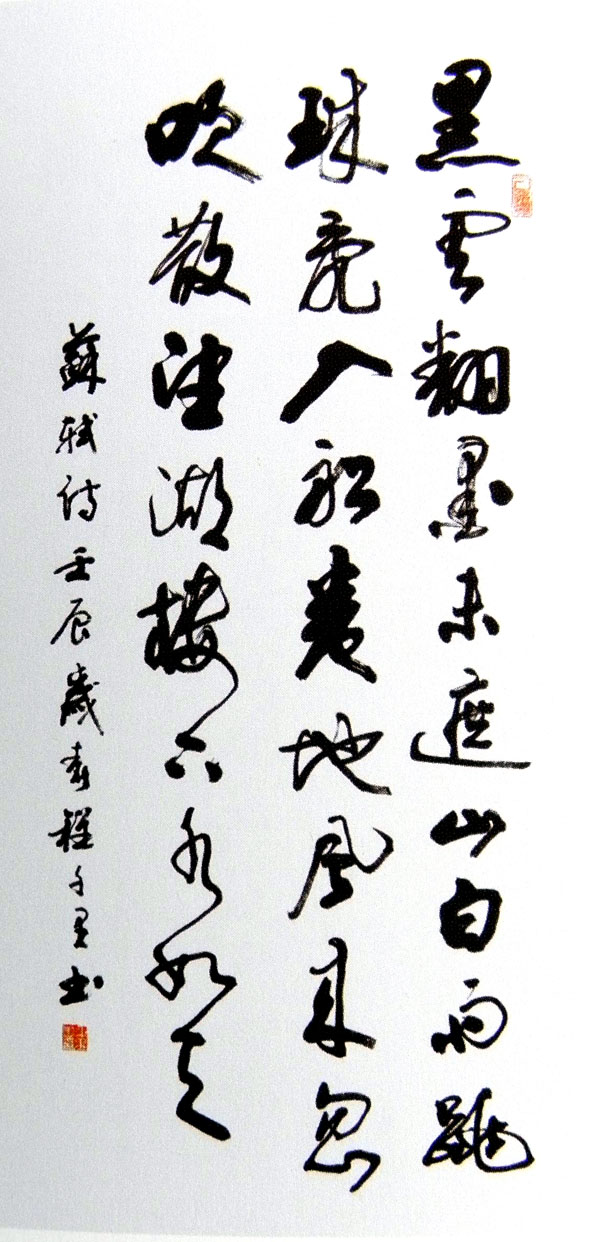 黑雲翻墨未遮山白雨跳
珠亂入船卷地風來忽
吹散望湖樓下水如天
蘇軾詩壬辰歲春程千里書